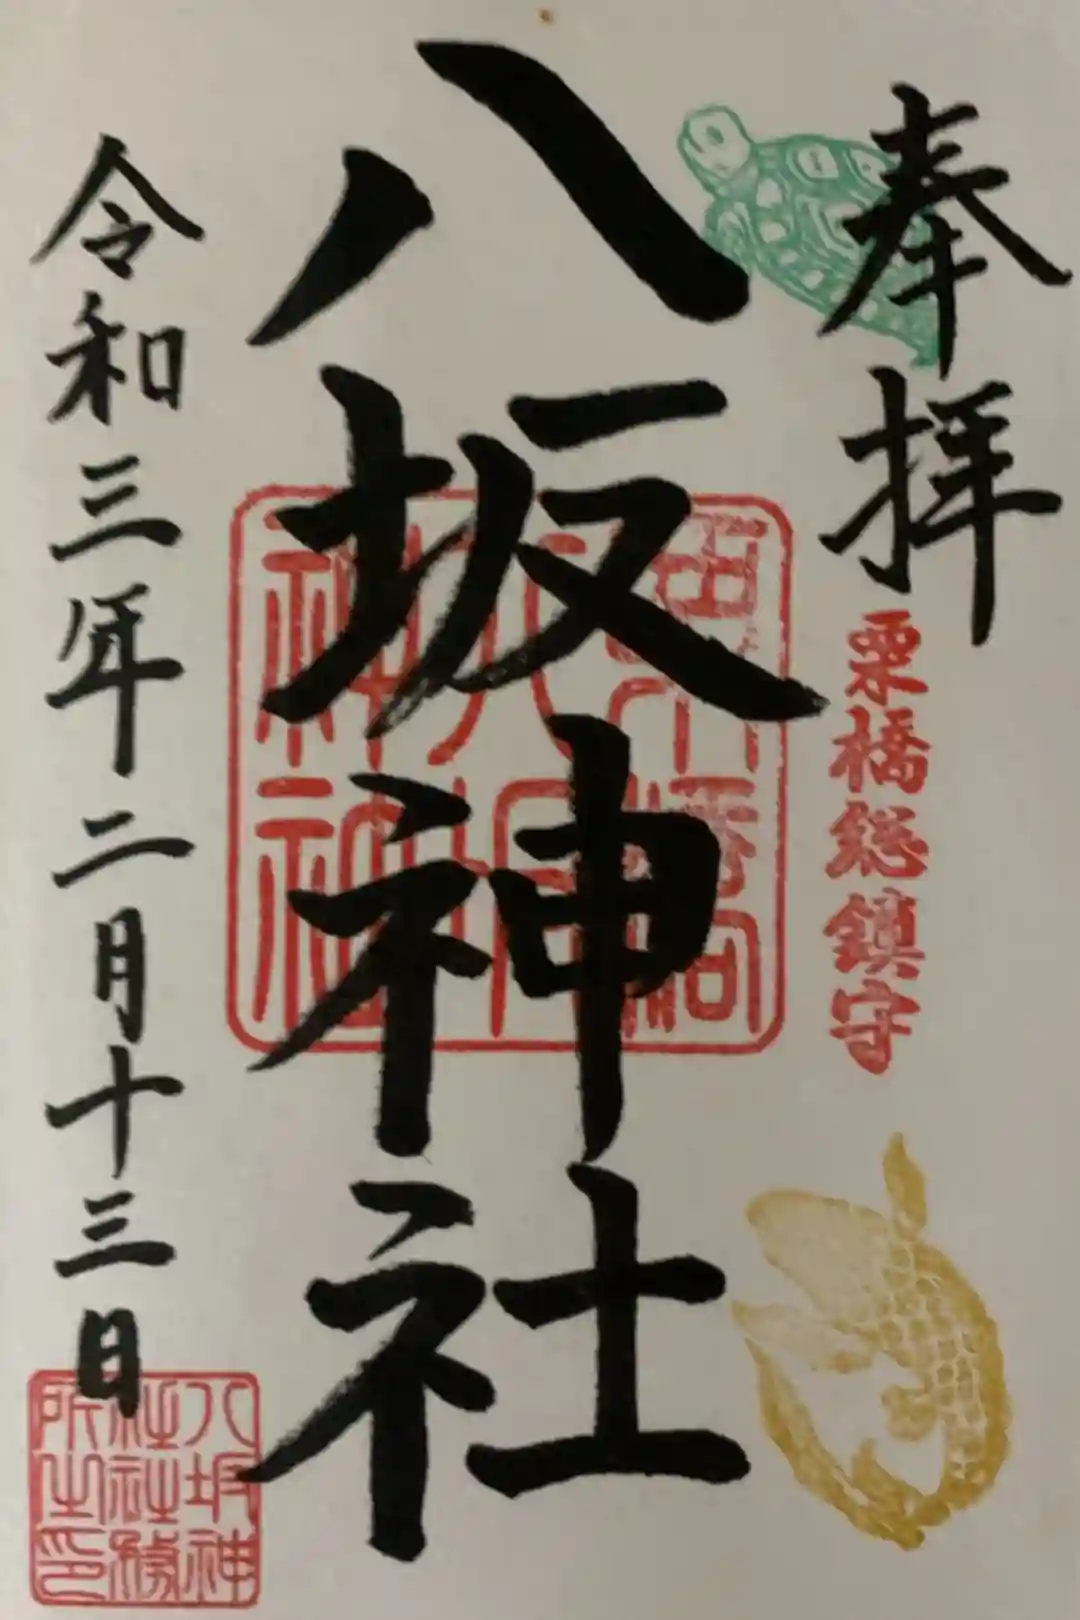 奉拝
栗橋総鎮守
八坂神社
令和三年二月十三日
八坂神
社社務
所之印